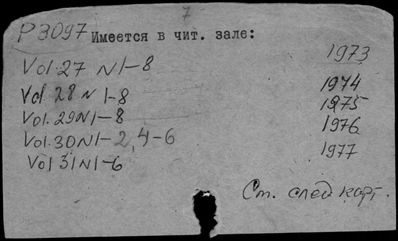 7
P3097 Имеется в чит. зале:
Vol. 27 N1-8 1973
Vol. 28 N1-8 1974
Vol. 29 N1-8 1975
Vol. 30 N1-2, 4-6 1976
Vol 31 N1-6 1977
См. след карт.